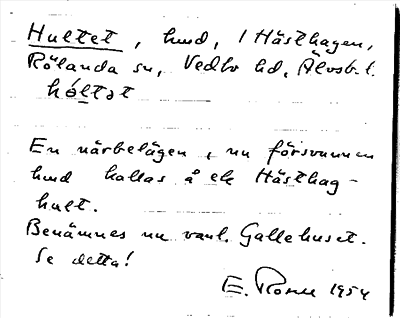 Hultet, hmd, i Hästhagen,
Rölanda sn, Vedbo hd, Älvsb. l.
hóltət
En närbelägen, nu försvunnen
hmd kallas å ek Hästhag-
hult.
Benämnes nu vanl. Gallehuset.
Se detta!
E. 1954